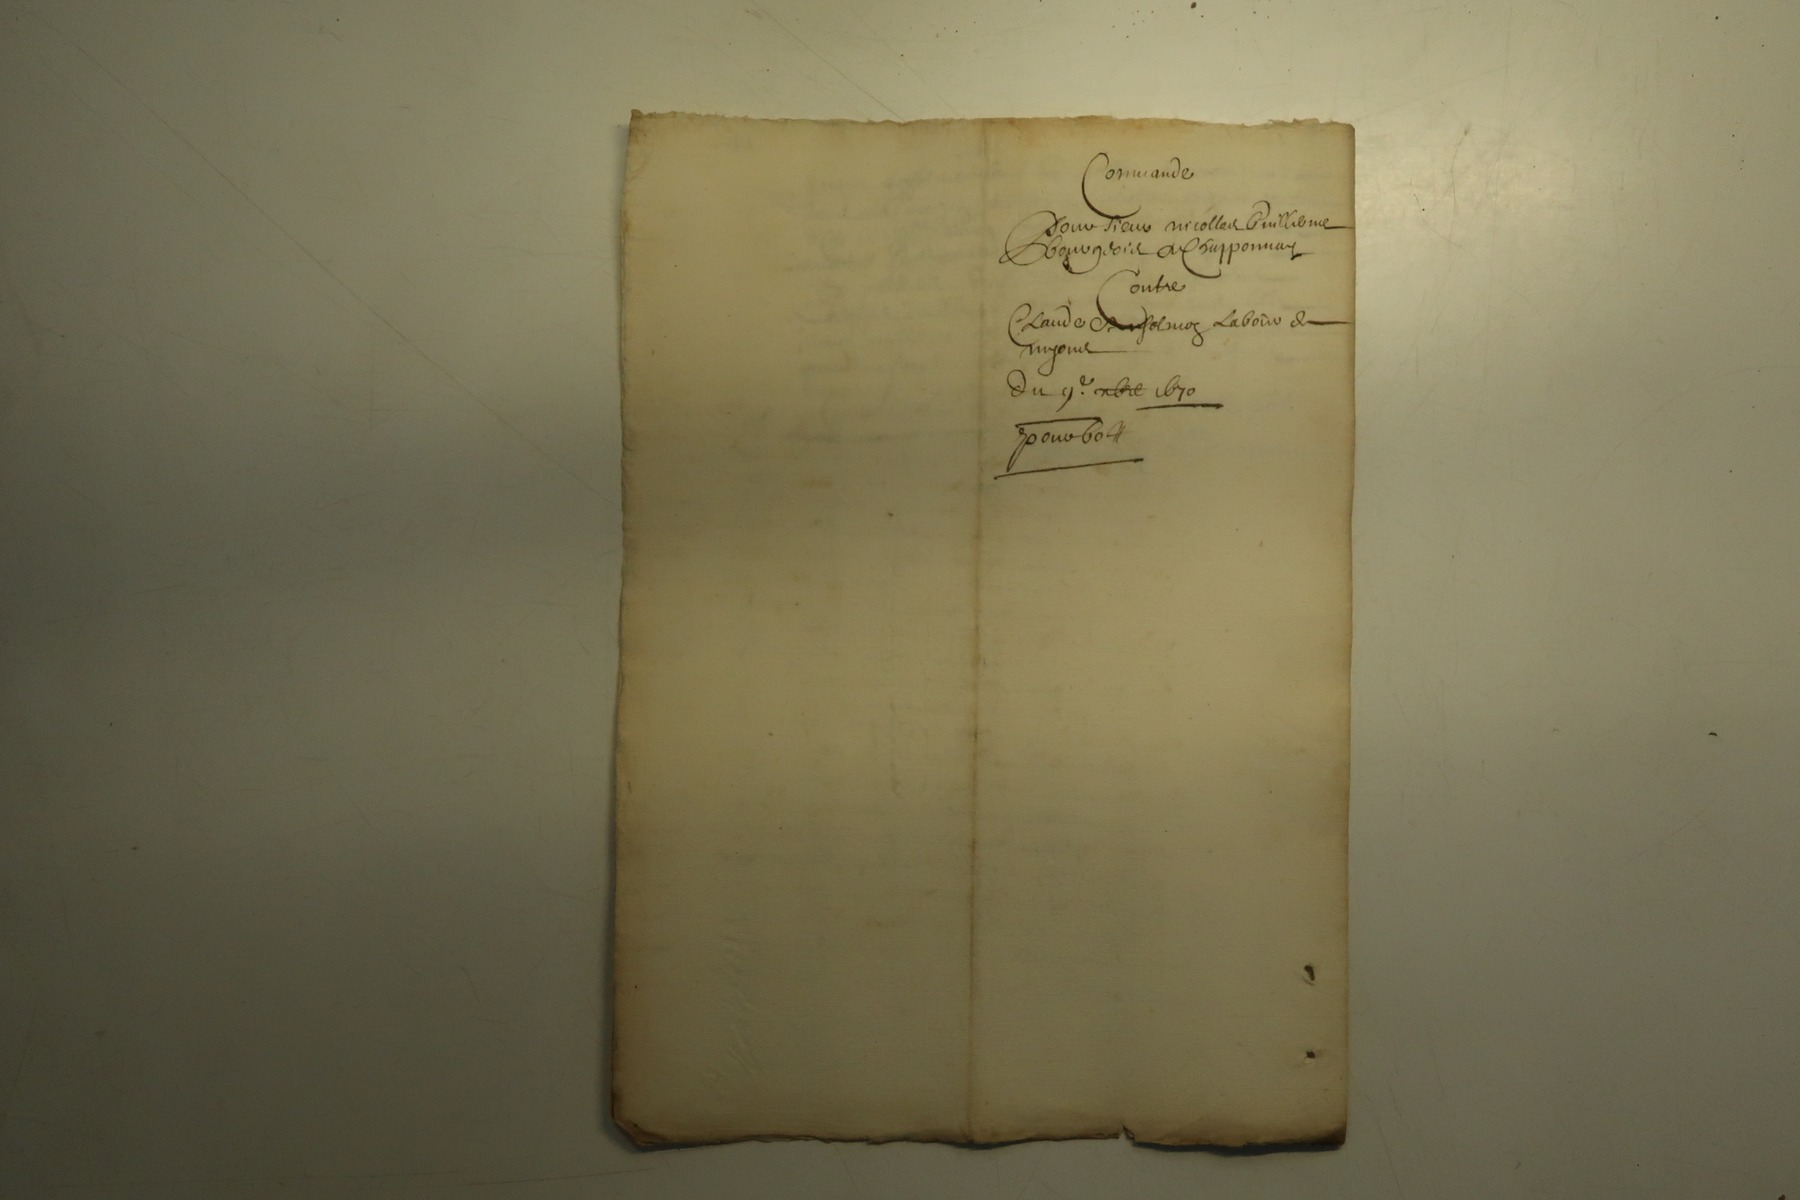 Commande
pour sieur nicollas Guillieme
bourgeois a Chapponnay
Contre
Claude labour de
du 9e xbre 1670
pour boff